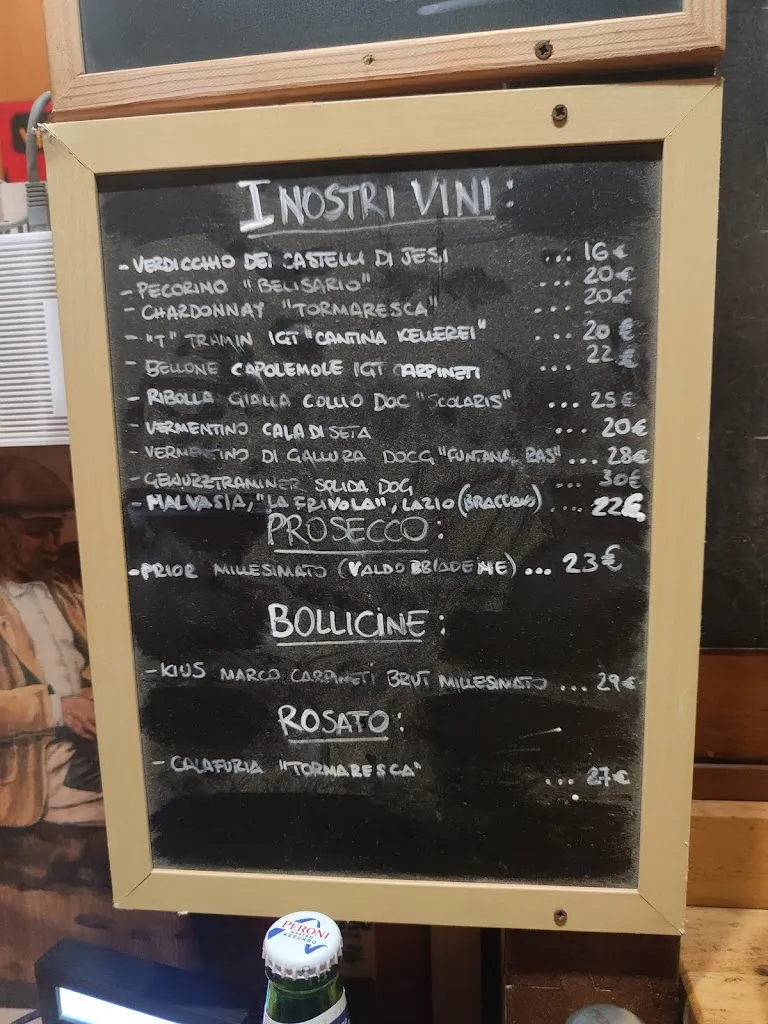 I NOSTRI VINI:
- VERDICCHIO DEI CASTELLI DI JESI ... 16€
- PECORINO "BELISARIO" ... 20€
- CHARDONNAY "TORMARESCA" ... 20€
- "T" TRAMIN IGT "CANTINA KELLEREI" ... 20€
- BELLONE CAPOLEMOLE IGT CARPINETI ... 22€
- RIBOLLA GIALLA COLLIO DOC "SCOLARIS" ... 25€
- VERMENTINO CALA DI SETA ... 20€
- VERMENTINO DI GALLURA DOCG "FUNTANA RAS" ... 28€
- GEWURZTRAMINER SOLIDA DOC ... 30€
- MALVASIA, "LA FRIVOLA", LAZIO (BRACCIANO) ... 22€
PROSECCO:
- PRIOR MILLESIMATO (VALDOBBIADENE) ... 23€
BOLLICINE:
- KIUS MARCO CARPINETI BRUT MILLESIMATO ... 29€
ROSATO:
- CALAFURIA "TORMARESCA" ... 27€
PERONI
NASTRO
AZZURRO